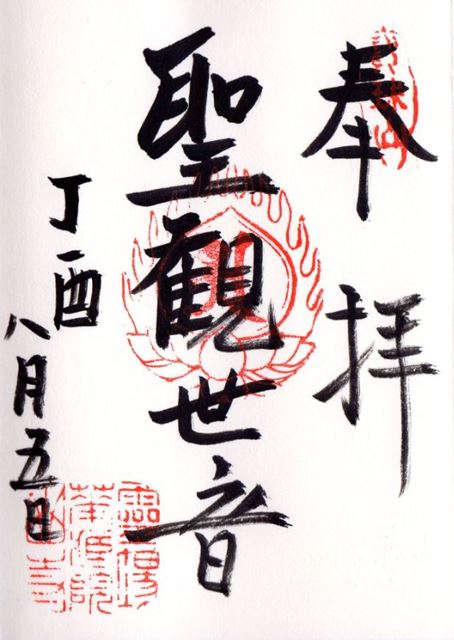 奉拝
聖観世音
丁酉
八月五日